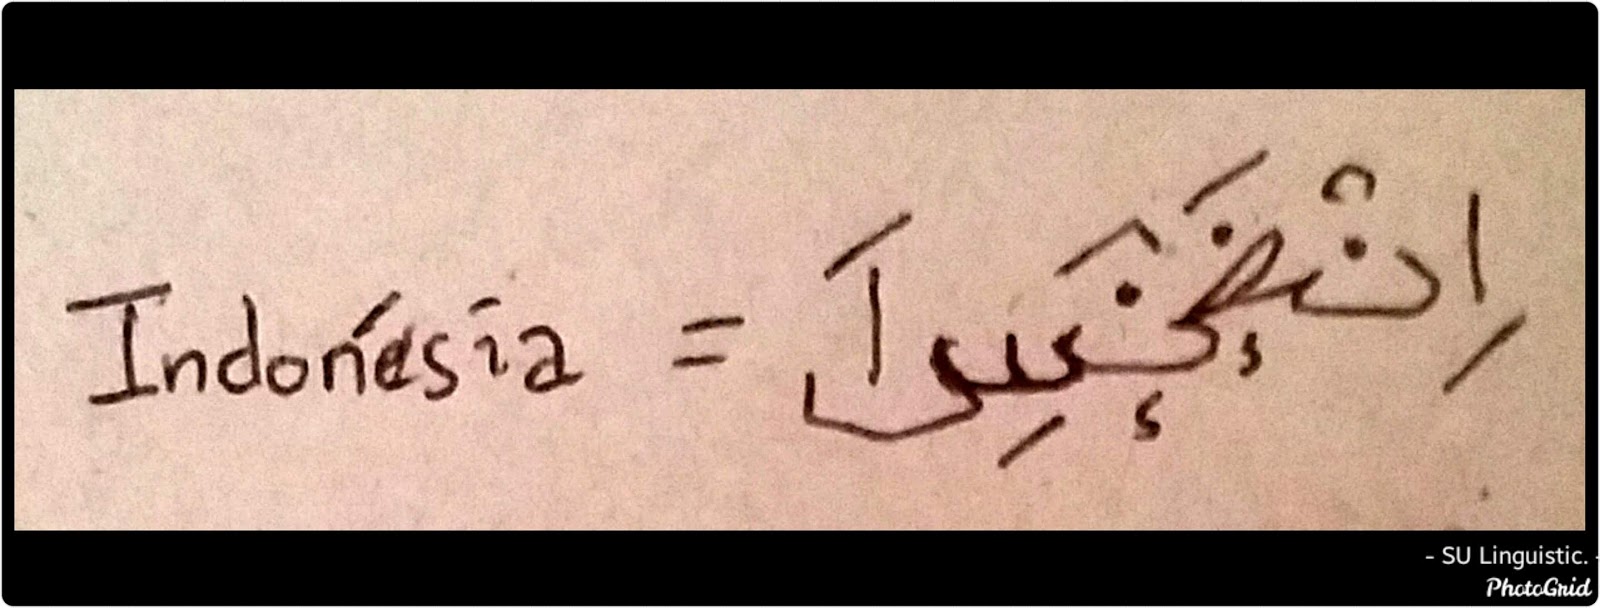 Indonésia = اِنْضَنَسِاَ
- SU Linguistic. -
PhotoGrid